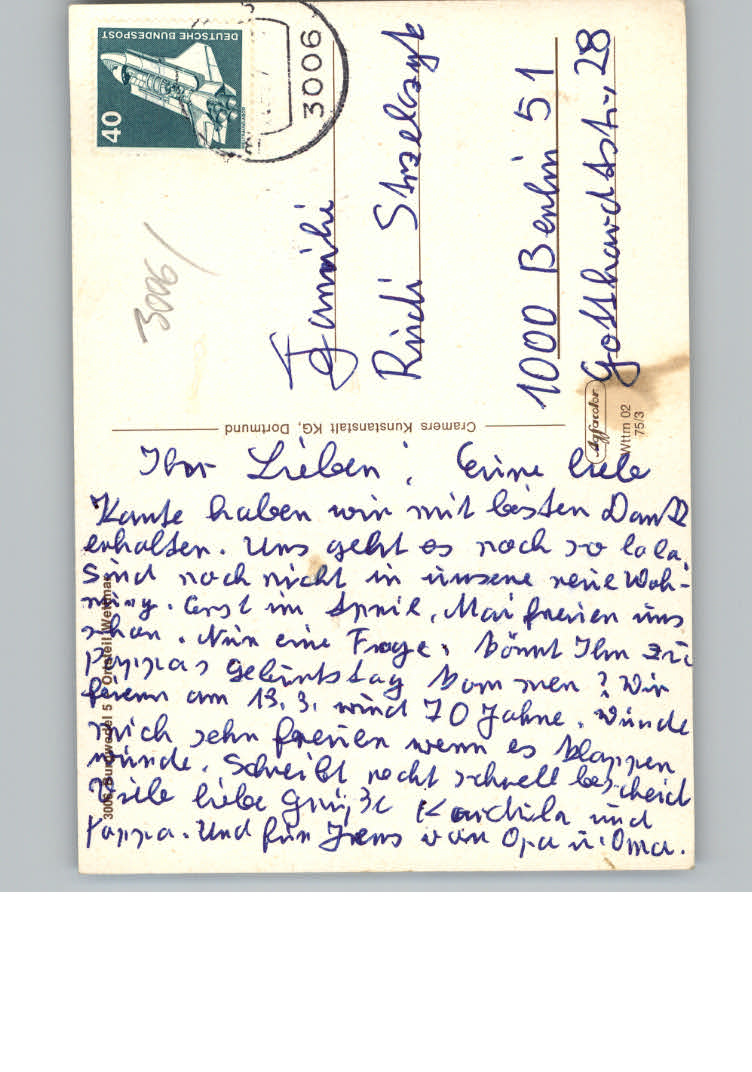 DEUTSCHE BUNDESPOST
40
3006
3006/
Familie
Rudi Strzelczyk
1000 Berlin 51
Gotthardtstr. 28
Cramers Kunstanstalt KG, Dortmund
Agfacolor
Wttm 02
75/3
3006 Burgwedel 5 Ortsteil Wettmar
Ihr Lieben! Eure liebe
Karte haben wir mit besten Dank
erhalten. Uns geht es noch so lala.
Sind noch nicht in unsere neue Woh-
nung. Erst im April, Mai freuen uns
schon. Nun eine Frage, könnt Ihr zu
Pappas Geburtstag kommen? Wir
feiern am 13.3. wird 70 Jahre. Würde
mich sehr freuen wenn es klappen
würde. Schreibt recht schnell bescheid
Viele liebe Grüße und
Pappa. Und für Jens von Opa u. Oma.